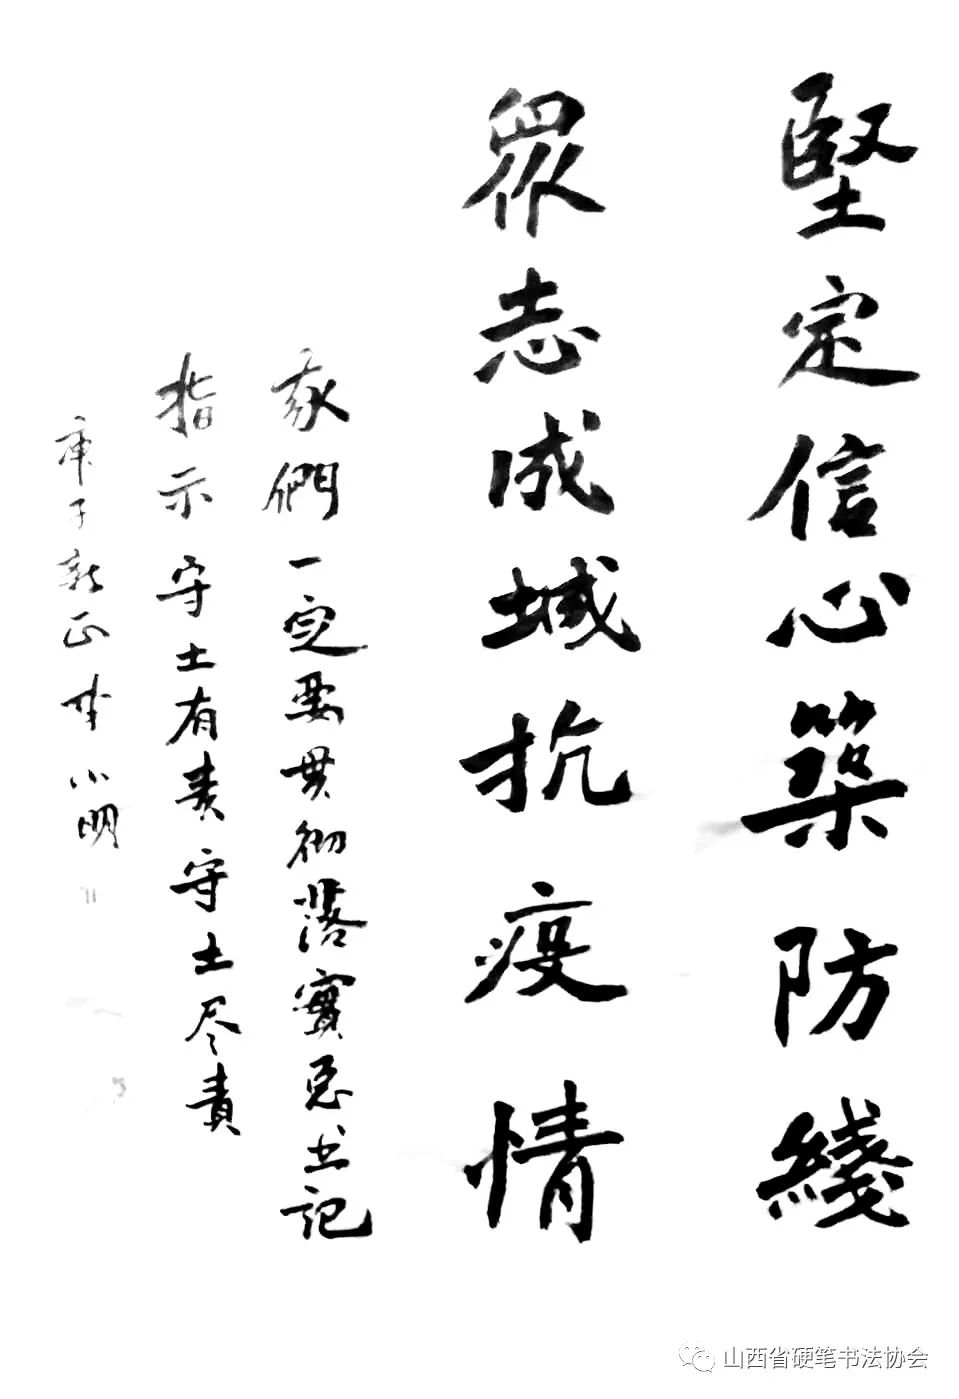 堅定信心築防綫
眾志成城抗疫情
我們一定要贯彻落實总书記
指示守土有责守土尽責
庚子新正李小明
山西省硬笔书法协会